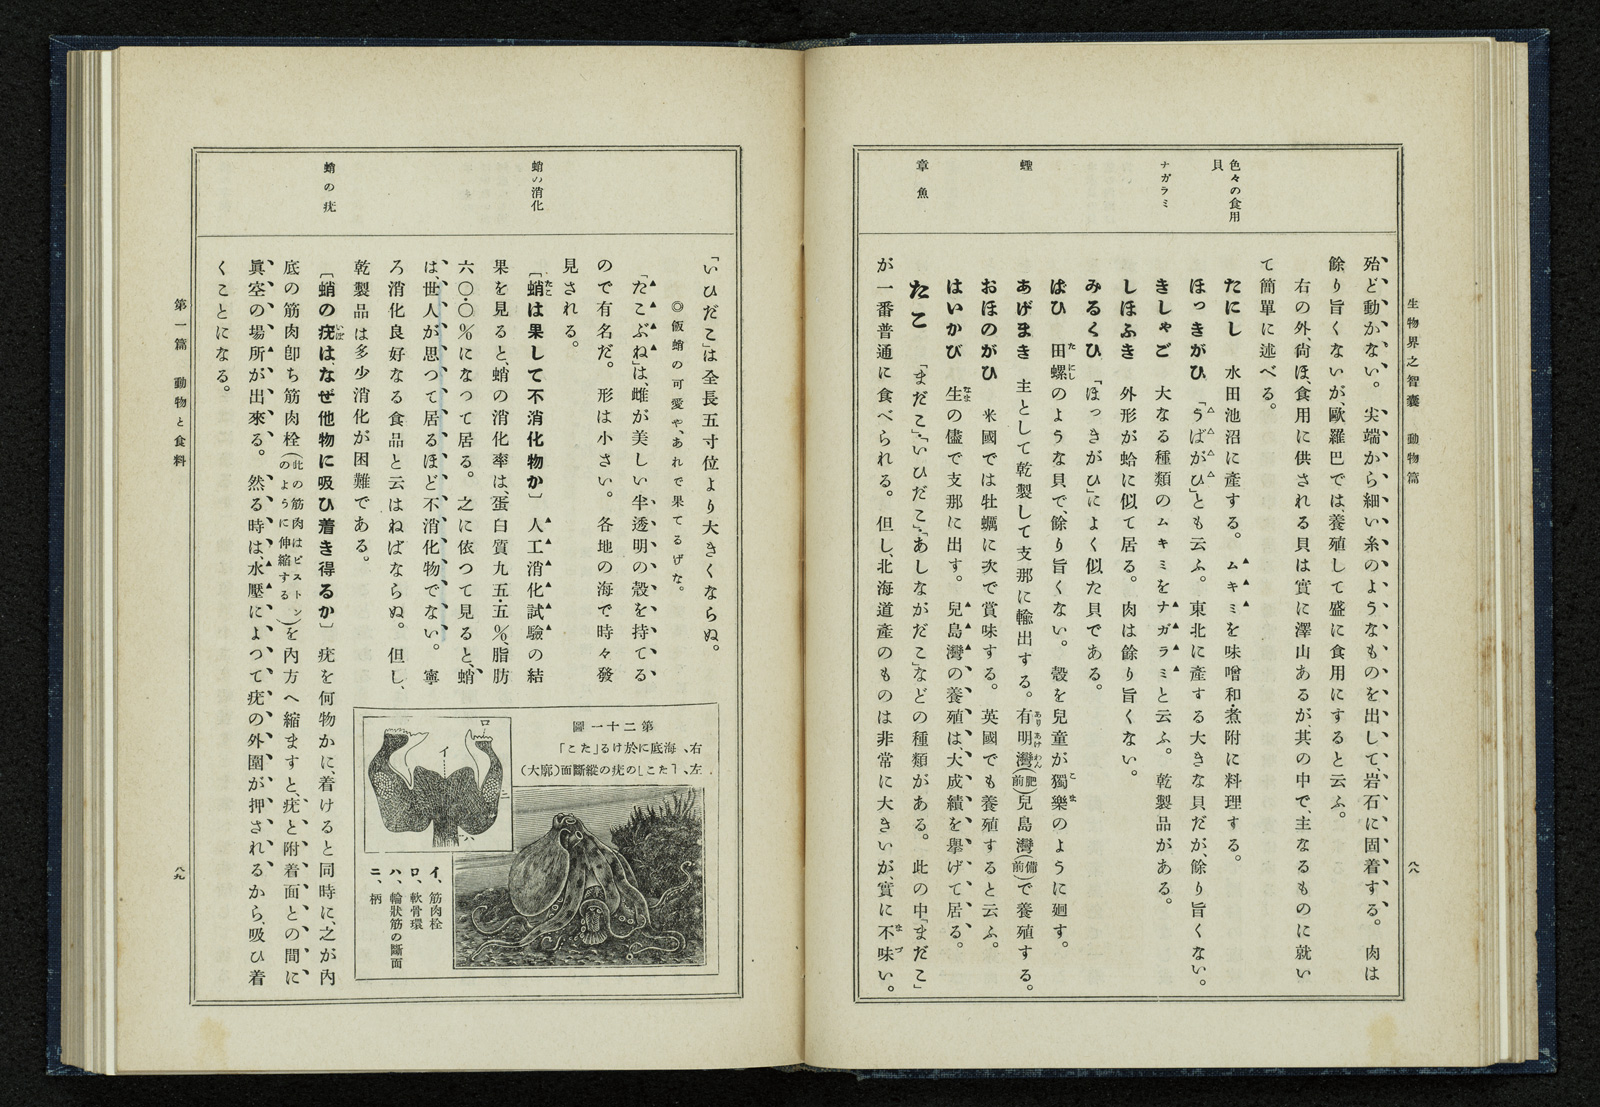 生物界之智囊　動物篇
八八
色々の食用
貝
ナガラミ
蟶
章魚
殆ど動かない。尖端から細い糸のようなものを出して、岩石に固着する。肉は
餘り旨くないが、歐羅巴では、養殖して盛に食用にすると云ふ。
右の外、尙ほ、食用に供される貝は實に澤山あるが、其の中で、主なるものに就い
て簡單に述べる。
たにし　水田池沼に產する。ムキミを味噌和・煮附に料理する。
ほっきがひ　「うばがひ」とも云ふ。東北に產する大きな貝だが、餘り旨くない。
きしゃご　大なる種類のムキミをナガラミと云ふ。乾製品がある。
しほふき　外形が蛤に似て居る。肉は餘り旨くない。
みるくひ　「ほっきがひ」によく似た貝である。
ばひ　田螺のような貝で、餘り旨くない。殼を兒童が獨樂のように廻す。
あげまき　主として乾製して支那に輸出する。有明灣(肥前)兒島灣(備前)で養殖する。
おほのがひ　米國では牡蠣に次で賞味する。英國でも養殖すると云ふ。
はいかび　生の儘で支那に出す。兒島灣の養殖は、大成績を擧げて居る。
たこ　「まだこ」・「いひだこ」・「あしながだこ」などの種類がある。此の中「まだこ」
が一番普通に食べられる。但し、北海道產のものは非常に大きいが、實に不味い。
蛸の消化
蛸の疣
「いひだこ」は全長五寸位より大きくならぬ。
◎飯蛸の可愛や、あれで果てるげな。
「たこぶね」は、雌が美しい半透明の殼を持てる
ので有名だ。形は小さい。各地の海で時々發
見される。
〔蛸は果して不消化物か〕　人工消化試驗の結
果を見ると、蛸の消化率は、蛋白質九五・五％脂肪
六〇・〇％になつて居る。之に依つて見ると、蛸
は、世人が思つて居るほど不消化物でない。寧
ろ消化良好なる食品と云はねばならぬ。但し、
乾製品は多少消化が困難である。
〔蛸の疣は、なぜ他物に吸ひ着き得るか〕　疣を何物かに、着けると同時に、之が內
底の筋肉卽ち筋肉栓(此の筋肉はピストンのように伸縮する)を內方へ縮ますと、疣と附着面との間に
眞空の場所が出來る。然る時は、水壓によつて疣の外圍が押されるから、吸ひ着
くことになる。
第二十一圖
右、海底に於ける「たこ」
左、「たこ」の疣の縱斷面(廓大)
イ
ロ
ハ
ニ
イ、筋肉栓
ロ、軟骨環
ハ、輪狀筋の斷面
ニ、柄
第一篇　動物と食料
八九